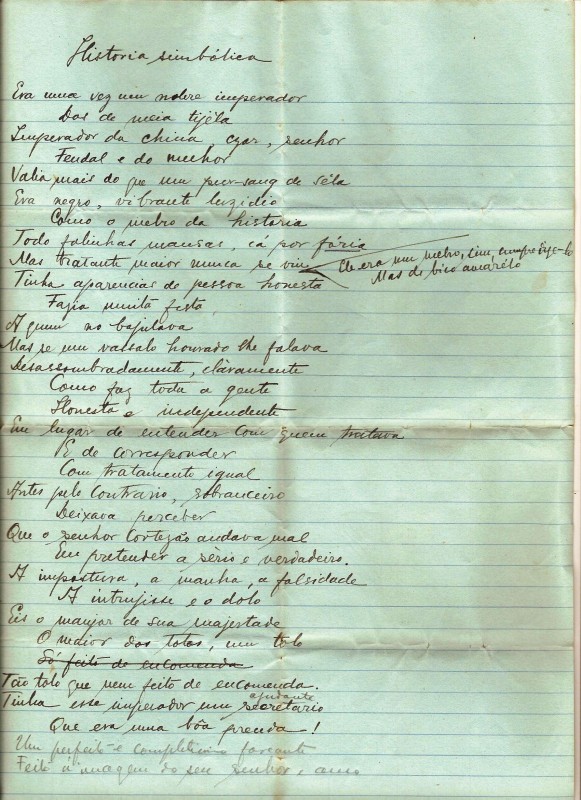 Historia simbólica
Era uma vez um nobre imperador
Dos de meia tijéla
Imperador da china czar, senhor
Feudal e do melhor
Valia mais do que um pur-sang de séla
Era negro, vibrante luzidio
Como o melro da historia
Todo falinhas mansas, cá por fória
Mas tratante maior nunca se viu
Ele era um melro, sim, cumpre dize-lo
Mas de bico amarélo
Tinha aparencias de pessoa honesta
Fazia muita festa
A quem no bajulava
Mas se um vassalo honrado lhe falava
Desassombradamente, claramente
Como faz toda a gente
Honesta e independente
Em lugar de entender com quem tratava
E de corresponder
Com tratamento igual
Antes pelo contrario, sobranceiro
Deixava perceber
Que o senhor Cortezão andava mal
Em pretender a sério e verdadeiro.
A impostura, a manha, a falsidade
A intrujisse e o dolo
Eis o manjar de sua majestade
O maior dos tolos, um tolo
Só feito de encomenda
Tão tolo que nem feito de encomenda.
Tinha esse imperador um secretario
ajudante
Que era uma bôa prenda!
Um perfeito e completissimo farçante
Feito á imagem do seu senhor e amo